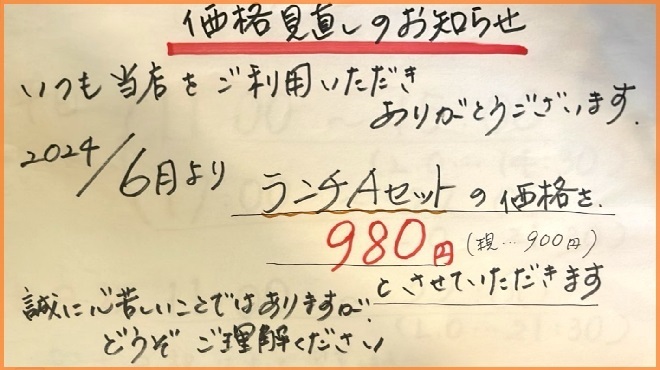 価格見直しのお知らせ
いつも当店をご利用いただき
ありがとうございます.
2024/6月より
ランチAセットの価格を.
980円(現…900円)
とさせていただきます
誠に心苦しいことではありますが.
どうぞご理解ください